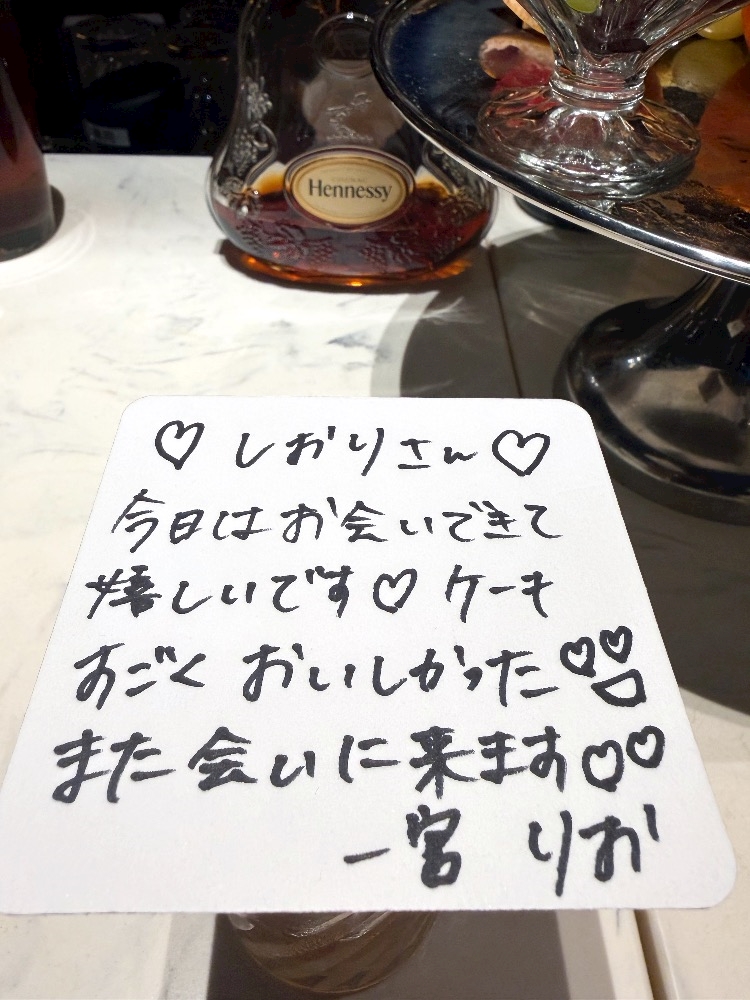 Hennessy
♡しおりさん♡
今日はお会いできて
嬉しいです♡ケーキ
すごくおいしかった
また会いに来ます♡♡
一宮 りお